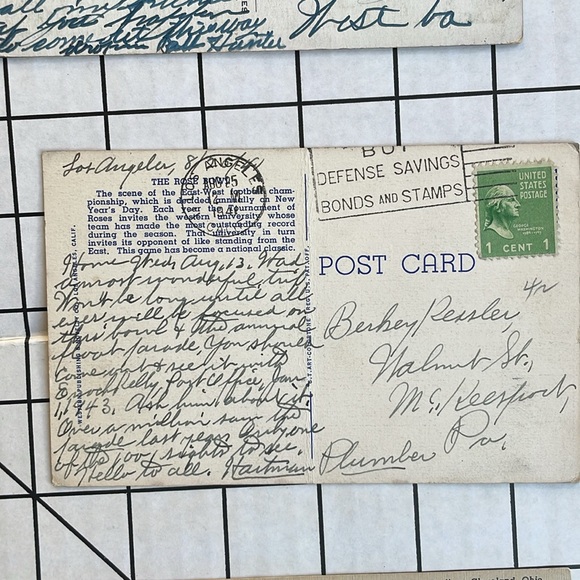 West
Hunter
Los Angeles, 8/
LOS ANGELES
AUG 25
1941
BUY
DEFENSE SAVINGS
BONDS AND STAMPS
UNITED
STATES
POSTAGE
GEORGE
WASHINGTON
1 CENT 1
THE ROSE BOWL
The scene of the East-West football cham-
pionship, which is decided annually on New
Year's Day. Each year the Tournament of
Roses invites the western university whose
team has made the most outstanding record
during the season. That university in turn
invites its opponent of like standing from the
East. This game has become a national classic.
Home Weds Aug. 13. Had
a most wonderful trip
Won't be long until all
eyes will be focused on
this bowl & the annual
float parade. You should
come out & see it with
Kelly, Post Office, Jan.
1, 1943. Ask him about it.
Over a million saw the
parade last year. Anyone
of the 1001 sights to see.
Hello to all. Hartman Plumber
POST CARD
4/2
Berkey Ressler,
Walnut St.,
Mc.Keesport,
Pa.
Cleveland, Ohio